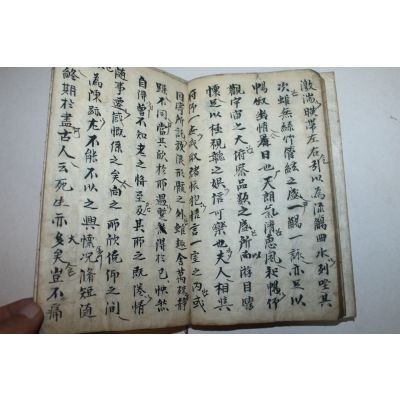 激湍映帶左右引以為流觴曲水列坐其
次雖無絲竹管絃之盛一觴一詠亦足以
暢叙幽情是日也天朗氣清惠風和暢仰
觀宇宙之大俯察品類之盛所以游目騁
懷足以極視聽之娛信可樂也夫人相與
俯仰一世或取諸懷抱悟言一室之內或
因寄所託放浪形骸之外雖趣舍萬殊靜
躁不同當其欣於所遇暫得於己快然
自得曾不知老之將至及其所之既倦情
隨事遷感慨係之矣向之所欣俛仰之間
為陳跡尤不能不以之興懷况脩短隨
終期於盡古人云死生亦大矣豈不痛